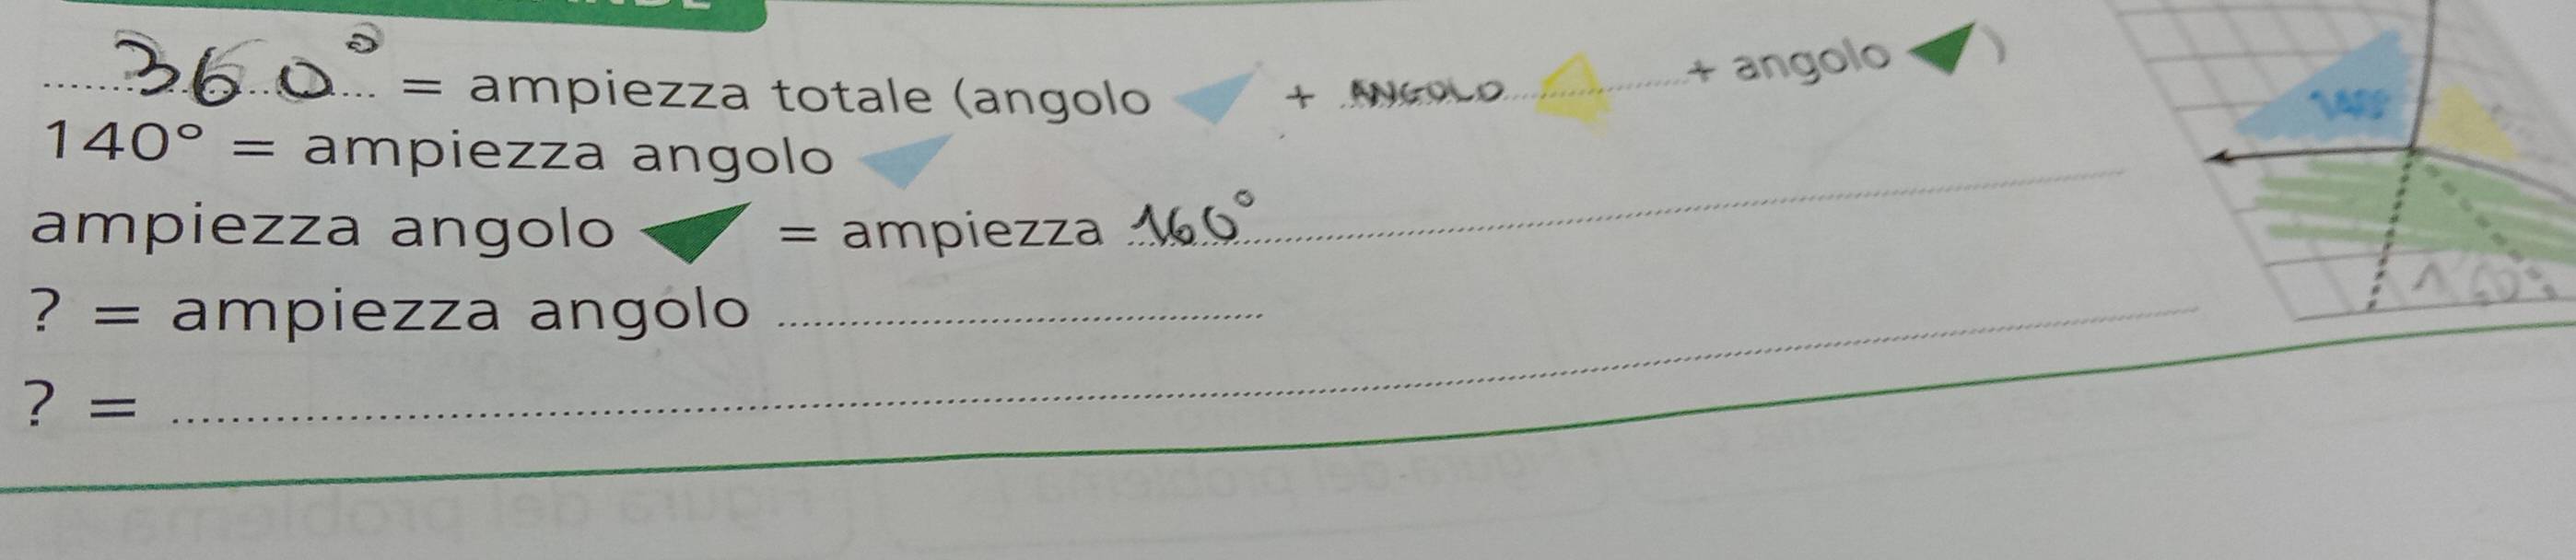 360° = ampiezza totale (angolo + ANGOLO + angolo )
140° = ampiezza angolo
ampiezza angolo = ampiezza 160°
? = ampiezza angolo
? =